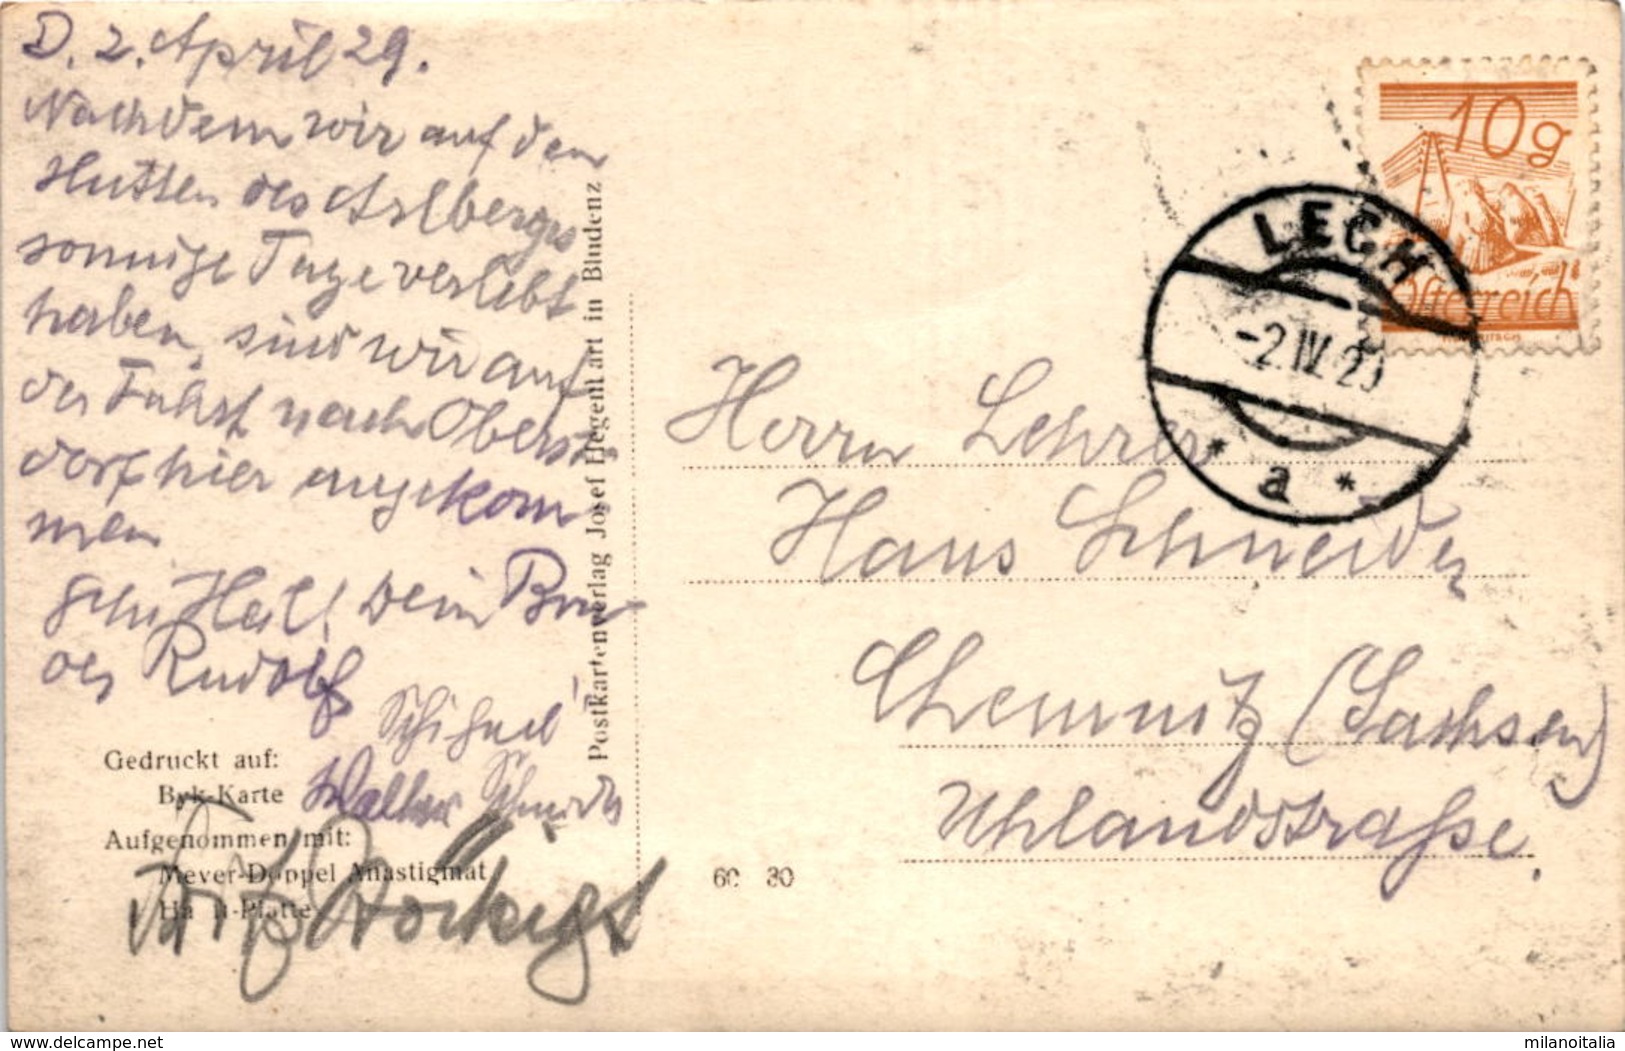 D. 2. April 29.
Nachdem wir auf den
Hütten des Arlberges
sonnige Tage verlebt
haben, sind wir auf
der Fahrt nach Oberst-
dorf hier angekom
men
Schi Heil! Dein Bru-
der Rudolf
Walter Schmidt
Gedruckt auf:
Byk-Karte
Aufgenommen mit:
Meyer-Doppel Anastigmat
Fritz
Postkartenverlag Josef Heggen art in Bludenz
60 30
10g
Österreich
LECH
-2.IV.29
* a *
Herrn Lehrer
Hans Schneider
Chemnitz (Sachsen)
Uhlandstraße.
delcampe.net
milanoitalia